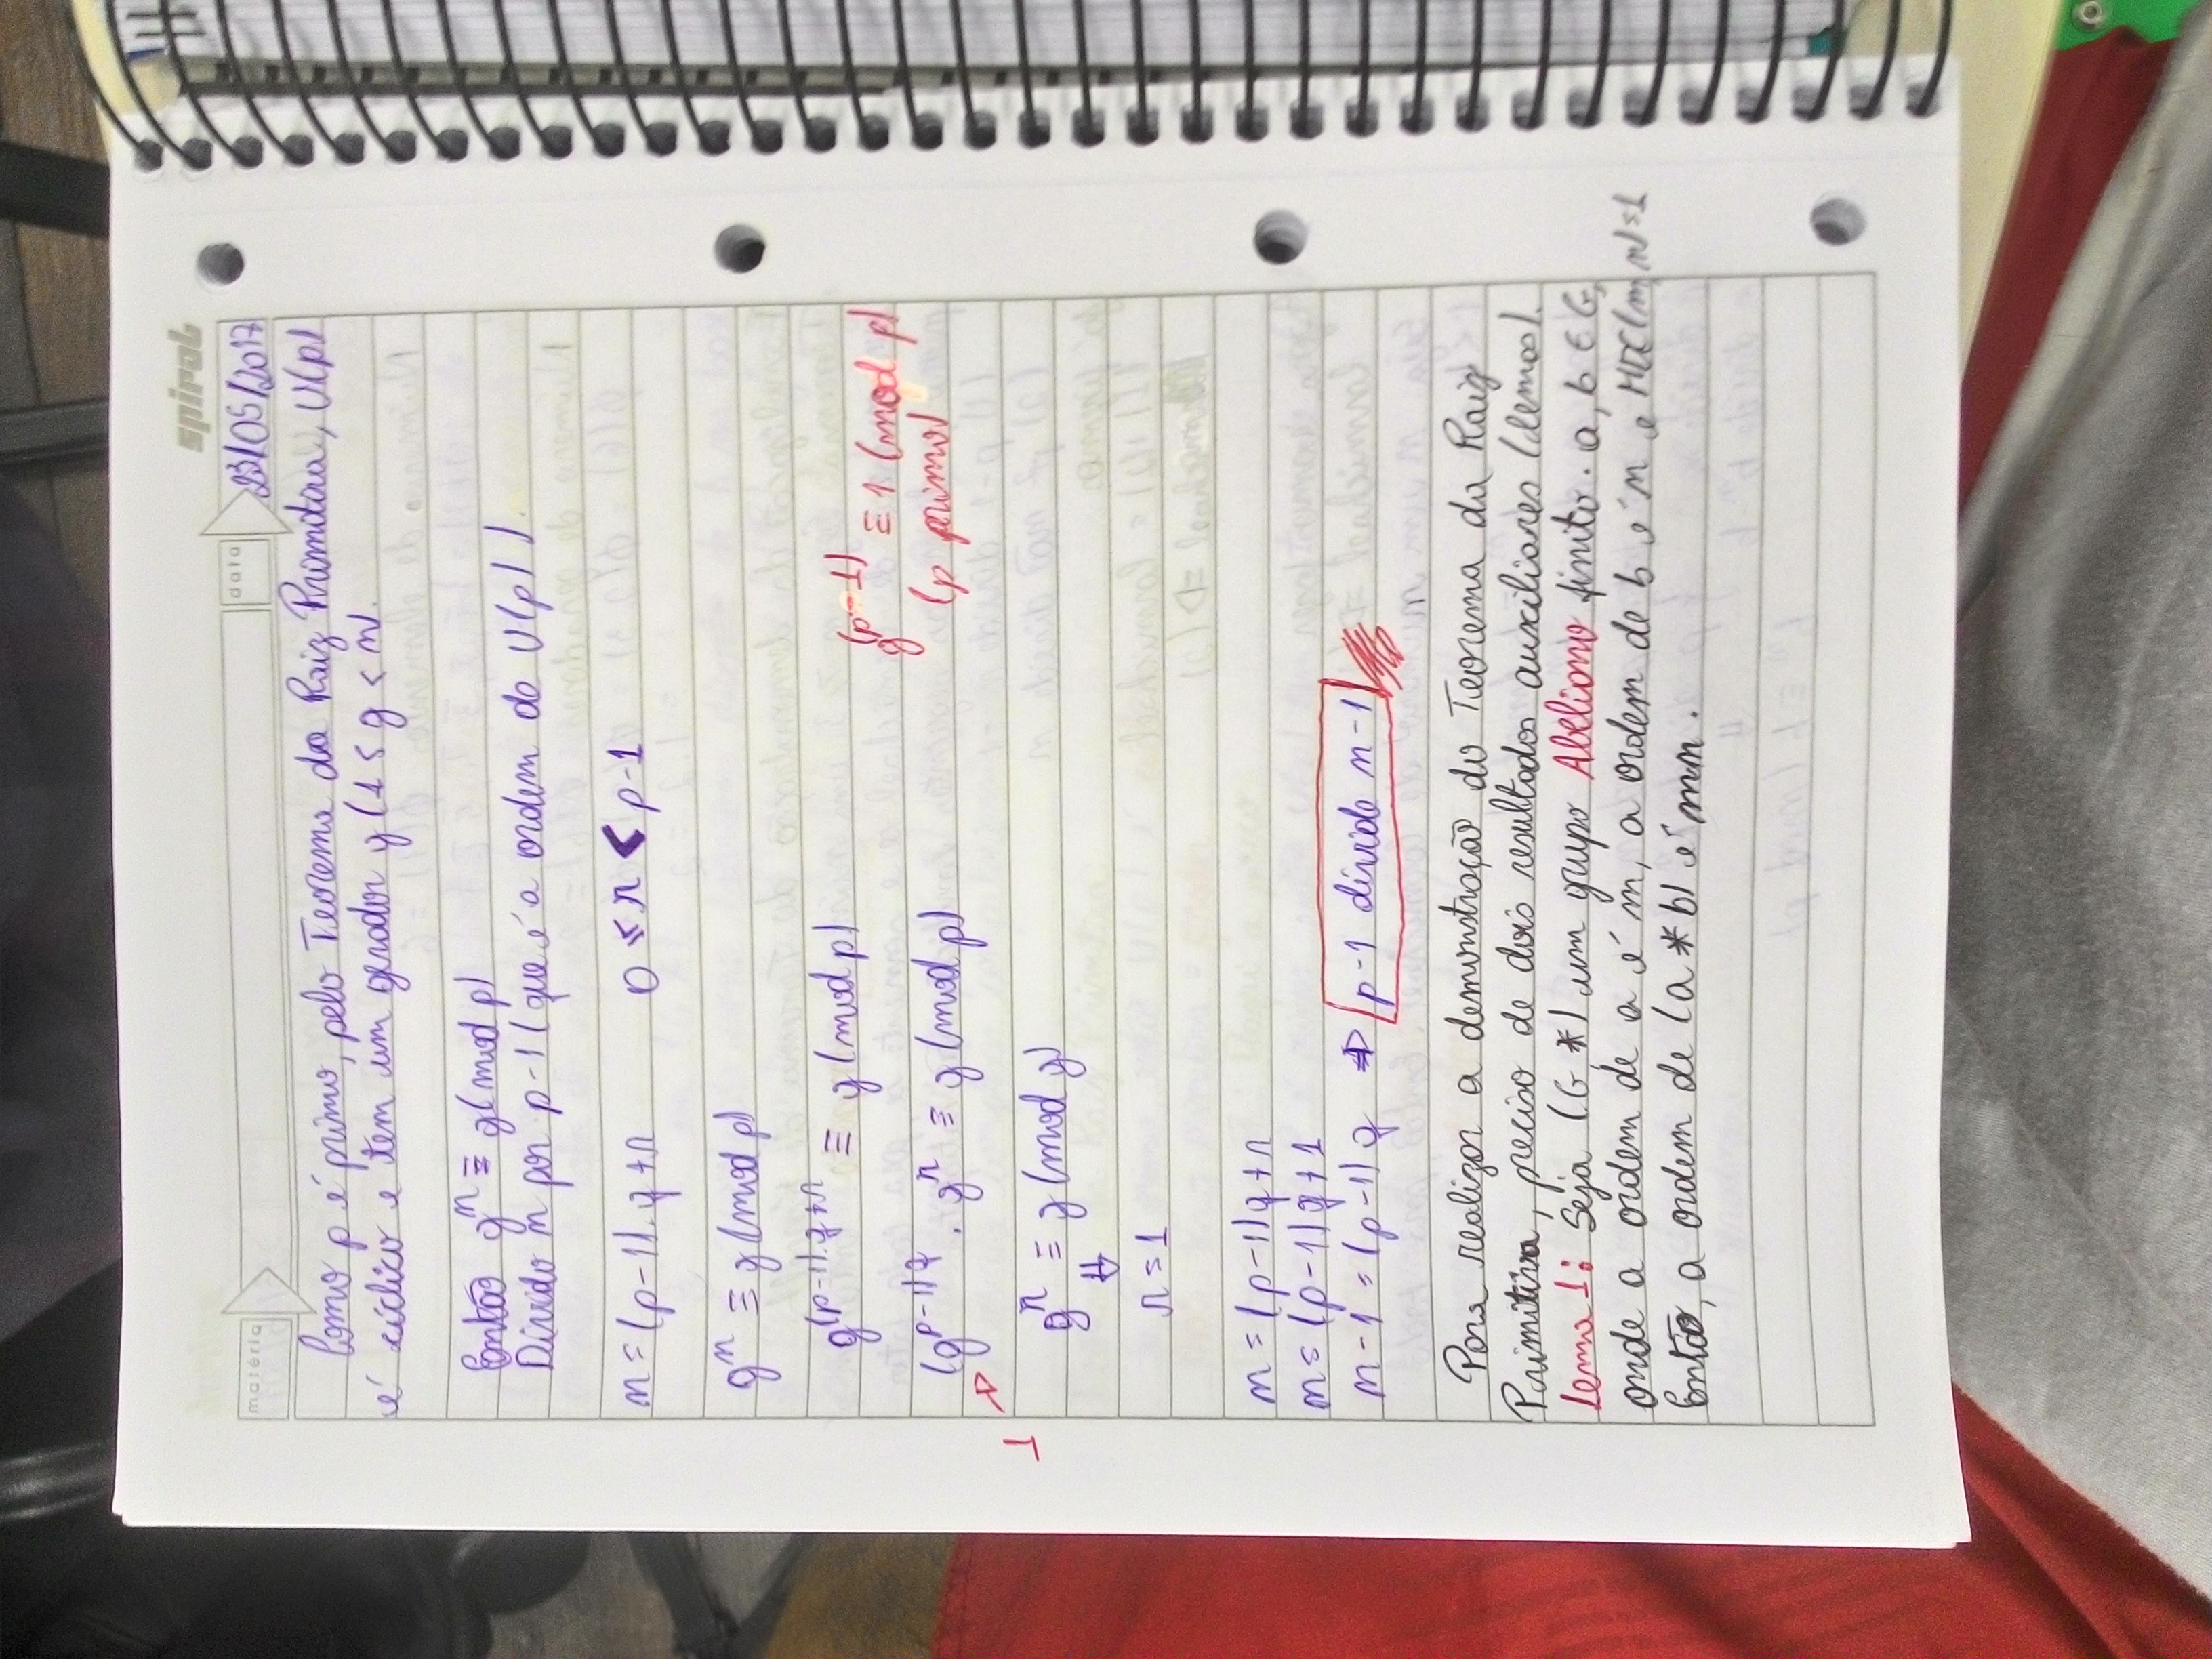 spiral
matéria
data
23/05/2017
Como p é primo, pelo Teorema da Raiz Primitiva, U(p)
é cíclico e tem um gerador g (1 ≤ g < n).
Então g^n ≡ g (mod p)
Divido n por p-1 (que é a ordem do U(p)).
n = (p-1).q + r 0 ≤ r < p-1
g^n ≡ g (mod p)
g^(p-1).q+r ≡ g (mod p)
g^(p-1) ≡ 1 (mod p)
(p primo)
(g^p-1)^q . g^r ≡ g (mod p)
1
g^r ≡ g (mod g)
⇓
r = 1
n = (p-1)q + r
n = (p-1)q + 1
n-1 = (p-1)q ⇒ p-1 divide n-1
Para realizar a demonstração do Teorema da Raiz
Primitiva, preciso de dois resultados auxiliares (lemas).
Lema 1: Seja (G, *) um grupo Abeliano finito. a, b ∈ G,
onde a ordem de a é m, a ordem de b é n e MDC(m, n) = 1
Então, a ordem de (a * b) é mn.